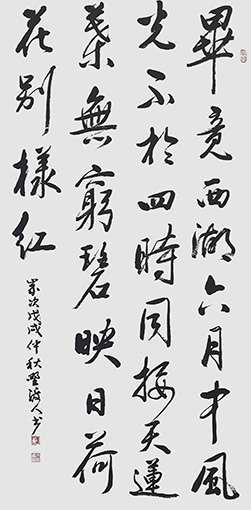 畢竟西湖六月中風
光不於四時同接天蓮
葉無窮碧映日荷
花別樣紅
歲次戊戌仲秋人書